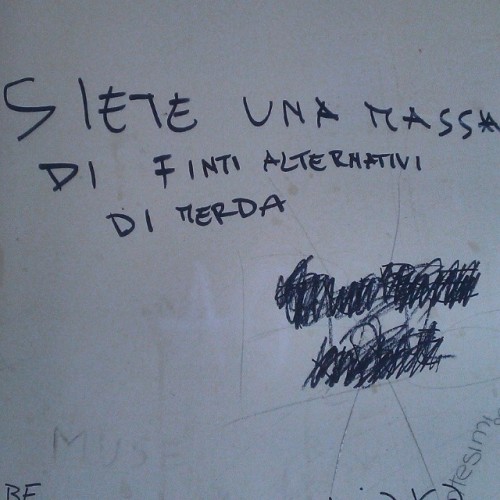 SIETE UNA MASSA
DI FINTI ALTERNATIVI
DI MERDA
MUSE
BE